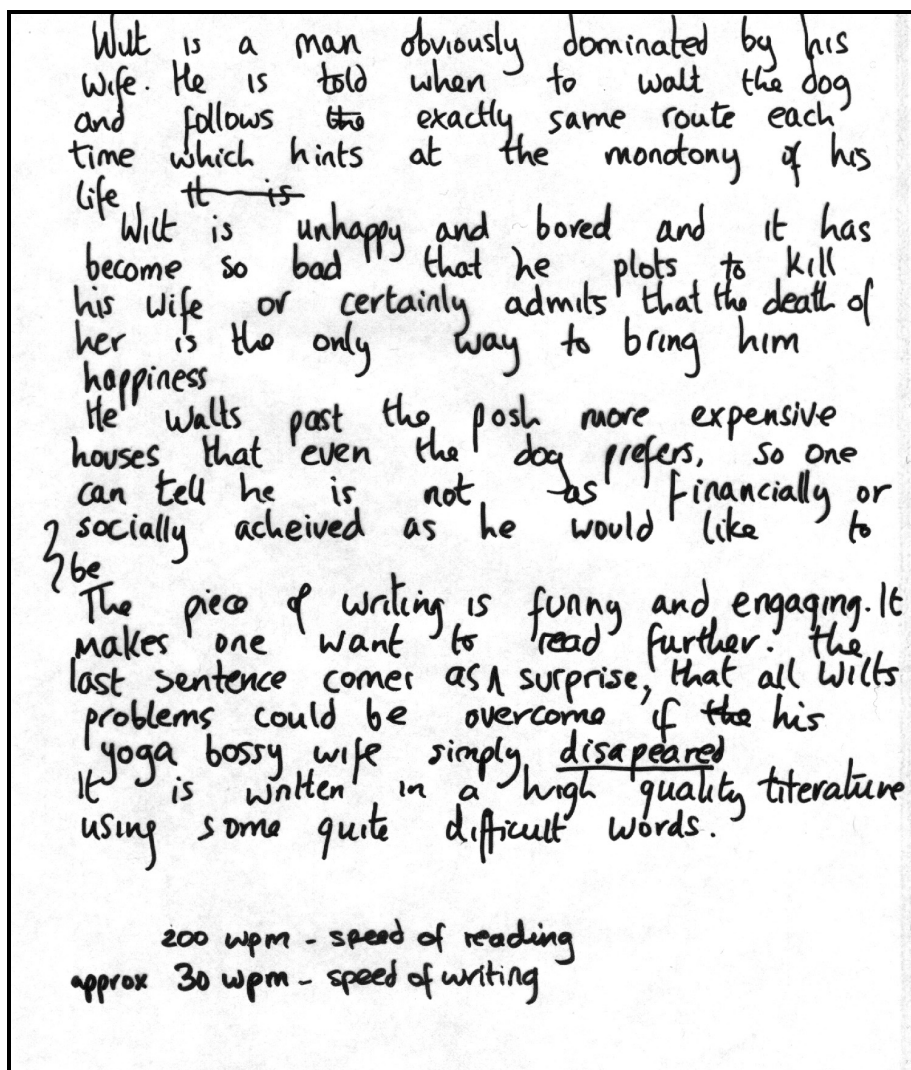 Wilt is a man obviously dominated by his
wife. He is told when to walt the dog
and follows the exactly same route each
time which hints at the monotony of his
life It is
Wilt is unhappy and bored and it has
become so bad that he plots to kill
his wife or certainly admits that the death of
her is the only way to bring him
happiness
He walts past the posh more expensive
houses that even the dog prefers, so one
can tell he is not as financially or
socially acheived as he would like to
be
The piece of writing is funny and engaging. It
makes one want to read further. the
last sentence comes as surprise, that all Wilts
problems could be overcome if the his
yoga bossy wife simply disapeared
It is written in a high quality literature
using some quite difficult words.
200 wpm - speed of reading
approx 30 wpm - speed of writing